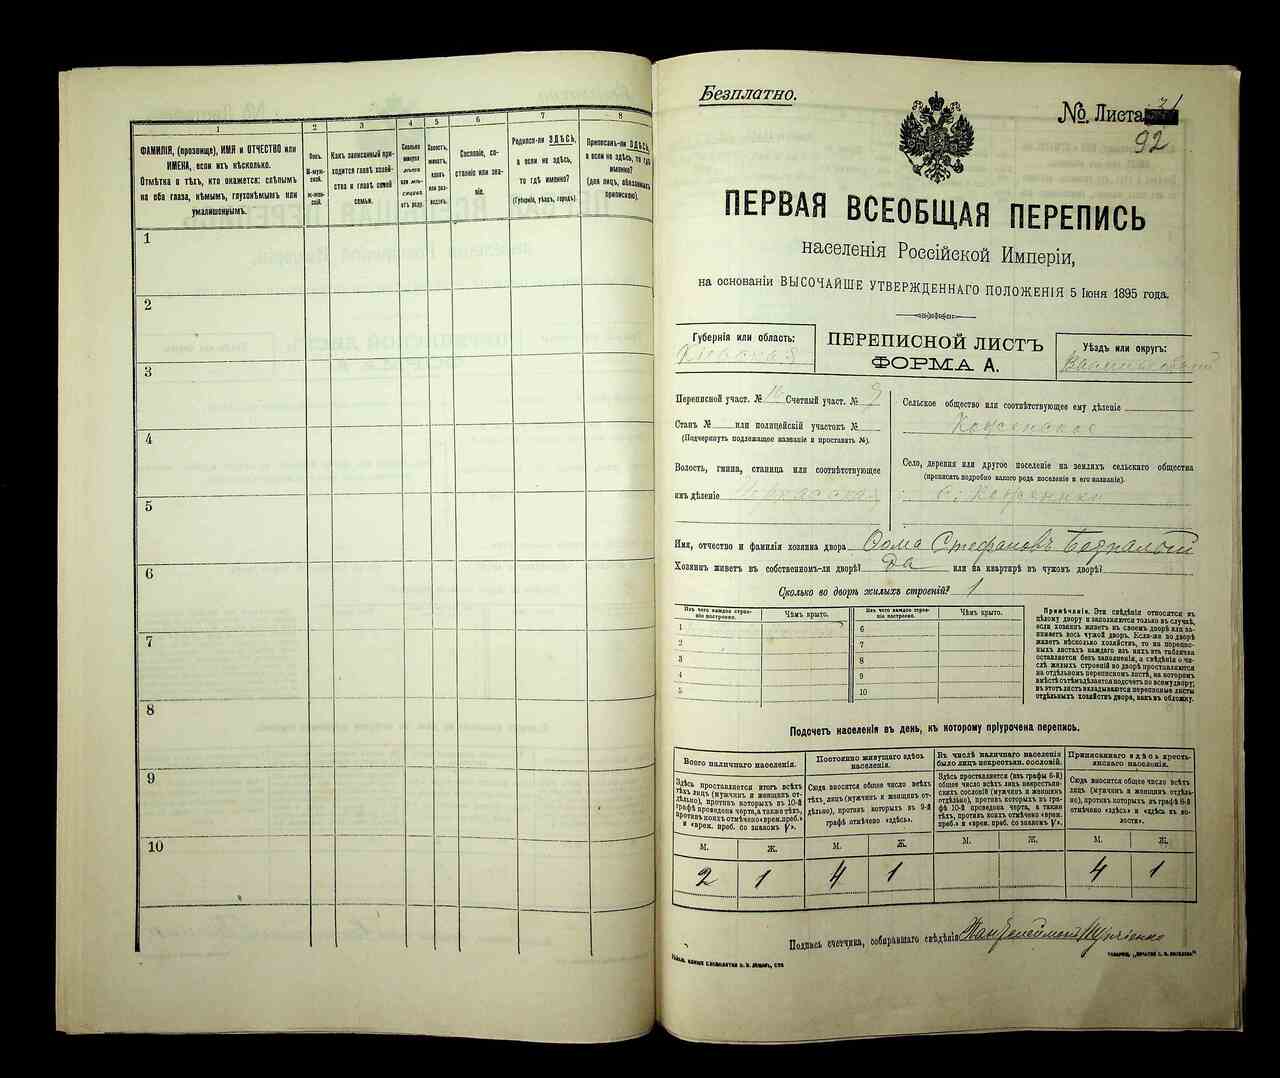 1 2 3 4 5 6 7 8
ФАМИЛІЯ, (прозвище), ИМЯ и ОТЧЕСТВО или
ИМЕНА, если ихъ нѣсколько.
Отмѣтка о тѣхъ, кто окажется: слѣпымъ
на оба глаза, нѣмымъ, глухонѣмымъ или
умалишоннымъ.
Полъ.
М-муж-
ской.
ж-жен-
ской.
Какъ записанный при-
ходится главѣ хозяй-
ства и главѣ своей
семьи.
Сколько
минуло
лѣтъ
или мѣ-
сяцевъ
отъ роду.
Холостъ,
женатъ,
вдовъ
или раз-
веденъ.
Сословіе, со-
стояніе или зва-
ніе.
Родился-ли ЗДѢСЬ,
а если не здѣсь,
то гдѣ именно?
(Губернія, уѣздъ, городъ).
Приписанъ-ли ЗДѢСЬ,
а если не здѣсь, то гдѣ
именно?
(для лицъ, обязанныхъ
припискою).
1
2
3
4
5
6
7
8
9
10
Безплатно.
№ Листа
92
ПЕРВАЯ ВСЕОБЩАЯ ПЕРЕПИСЬ
населенія Россійской Имперіи,
на основаніи ВЫСОЧАЙШЕ УТВЕРЖДЕННАГО ПОЛОЖЕНІЯ 5 Іюня 1895 года.
Губернія или область:
Кіевская
ПЕРЕПИСНОЙ ЛИСТЪ
ФОРМА А.
Уѣздъ или округъ:
Васильковскій
Переписной участ. № Счетный участ. № 9
Станъ № или полицейскій участокъ №
(Подчеркнуть подлежащее названіе и проставить №).
Волость, гмина, станица или соотвѣтствующее
имъ дѣленіе
Сельское общество или соотвѣтствующее ему дѣленіе
Село, деревня или другое поселеніе на земляхъ сельскаго общества
(прописать подробно какого рода поселеніе и его названіе).
Имя, отчество и фамилія хозяина двора Ѳома Стефановъ
Хозяинъ живетъ въ собственномъ-ли дворѣ? Да или на квартирѣ въ чужомъ дворѣ?
Сколько во дворѣ жилыхъ строеній? 1
Изъ чего каждое строе-
ніе построено.
Чѣмъ крыто.
1
2
3
4
5
Изъ чего каждое строе-
ніе построено.
Чѣмъ крыто.
6
7
8
9
10
Примѣчаніе. Эти свѣдѣнія относятся къ
цѣлому двору и заполняются только въ случаѣ,
если хозяинъ живетъ въ своемъ дворѣ или за-
нимаетъ весь чужой дворъ. Если-же во дворѣ
живетъ нѣсколько хозяйствъ, то на перепис-
ныхъ листахъ каждаго изъ нихъ эта табличка
оставляется безъ заполненія, а свѣдѣнія о чи-
слѣ жилыхъ строеній во дворѣ проставляются
на отдѣльномъ переписномъ листѣ, на которомъ
вмѣстѣ съ тѣмъ дѣлается подсчетъ по всему двору;
въ этотъ листъ вкладываются переписные листы
отдѣльныхъ хозяйствъ двора, какъ въ обложку.
Подсчетъ населенія въ день, къ которому пріурочена перепись.
Всего наличнаго населенія.
Здѣсь проставляется итогъ всѣхъ
тѣхъ лицъ (мужчинъ и женщинъ от-
дѣльно), противъ которыхъ въ 10-й
графѣ проведена черта, а также тѣхъ,
противъ коихъ отмѣчено «врем. преб.»
и «врем. преб. со знакомъ V».
Постоянно живущаго здѣсь
населенія.
Сюда вносится общее число всѣхъ
тѣхъ лицъ (мужчинъ и женщинъ от-
дѣльно), противъ которыхъ въ 9-й
графѣ отмѣчено «здѣсь».
Въ числѣ наличнаго населенія
было лицъ некрестьян. сословій.
Здѣсь проставляется (изъ графы 6-й)
общее число всѣхъ лицъ некрестьян-
скихъ сословій (мужчинъ и женщинъ
отдѣльно), противъ которыхъ въ гра-
фѣ 10-й проведена черта, а также
тѣхъ, противъ коихъ отмѣчено «врем.
преб.» и «врем. преб. со знакомъ V».
Приписаннаго здѣсь кресть-
янскаго населенія.
Сюда вносится общее число всѣхъ
лицъ (мужчинъ и женщинъ отдѣль-
но), противъ которыхъ въ графѣ 8-й
отмѣчено «здѣсь» и «здѣсь въ во-
лости».
М. Ж. М. Ж. М. Ж. М. Ж.
2 1 4 1 4 1
Подпись счетчика, собиравшаго свѣдѣнія